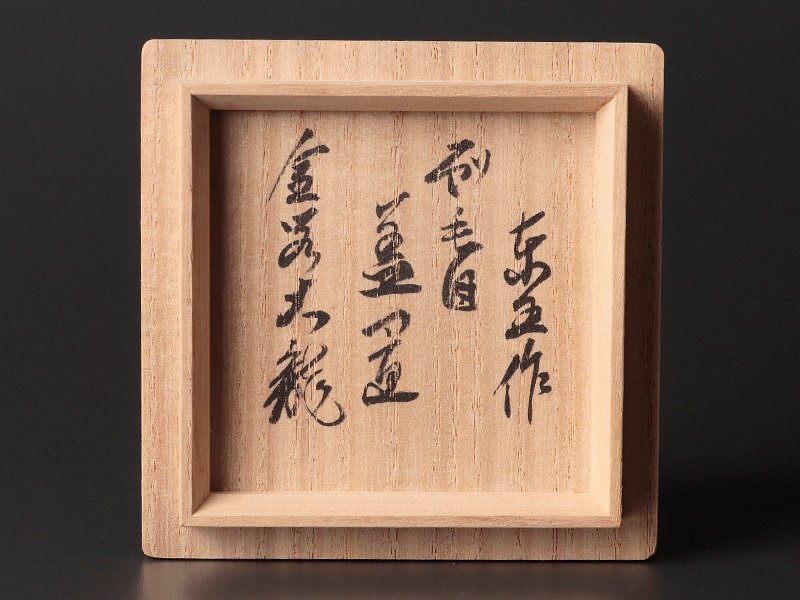 東五作
刷毛目
蓋置
金 大龍